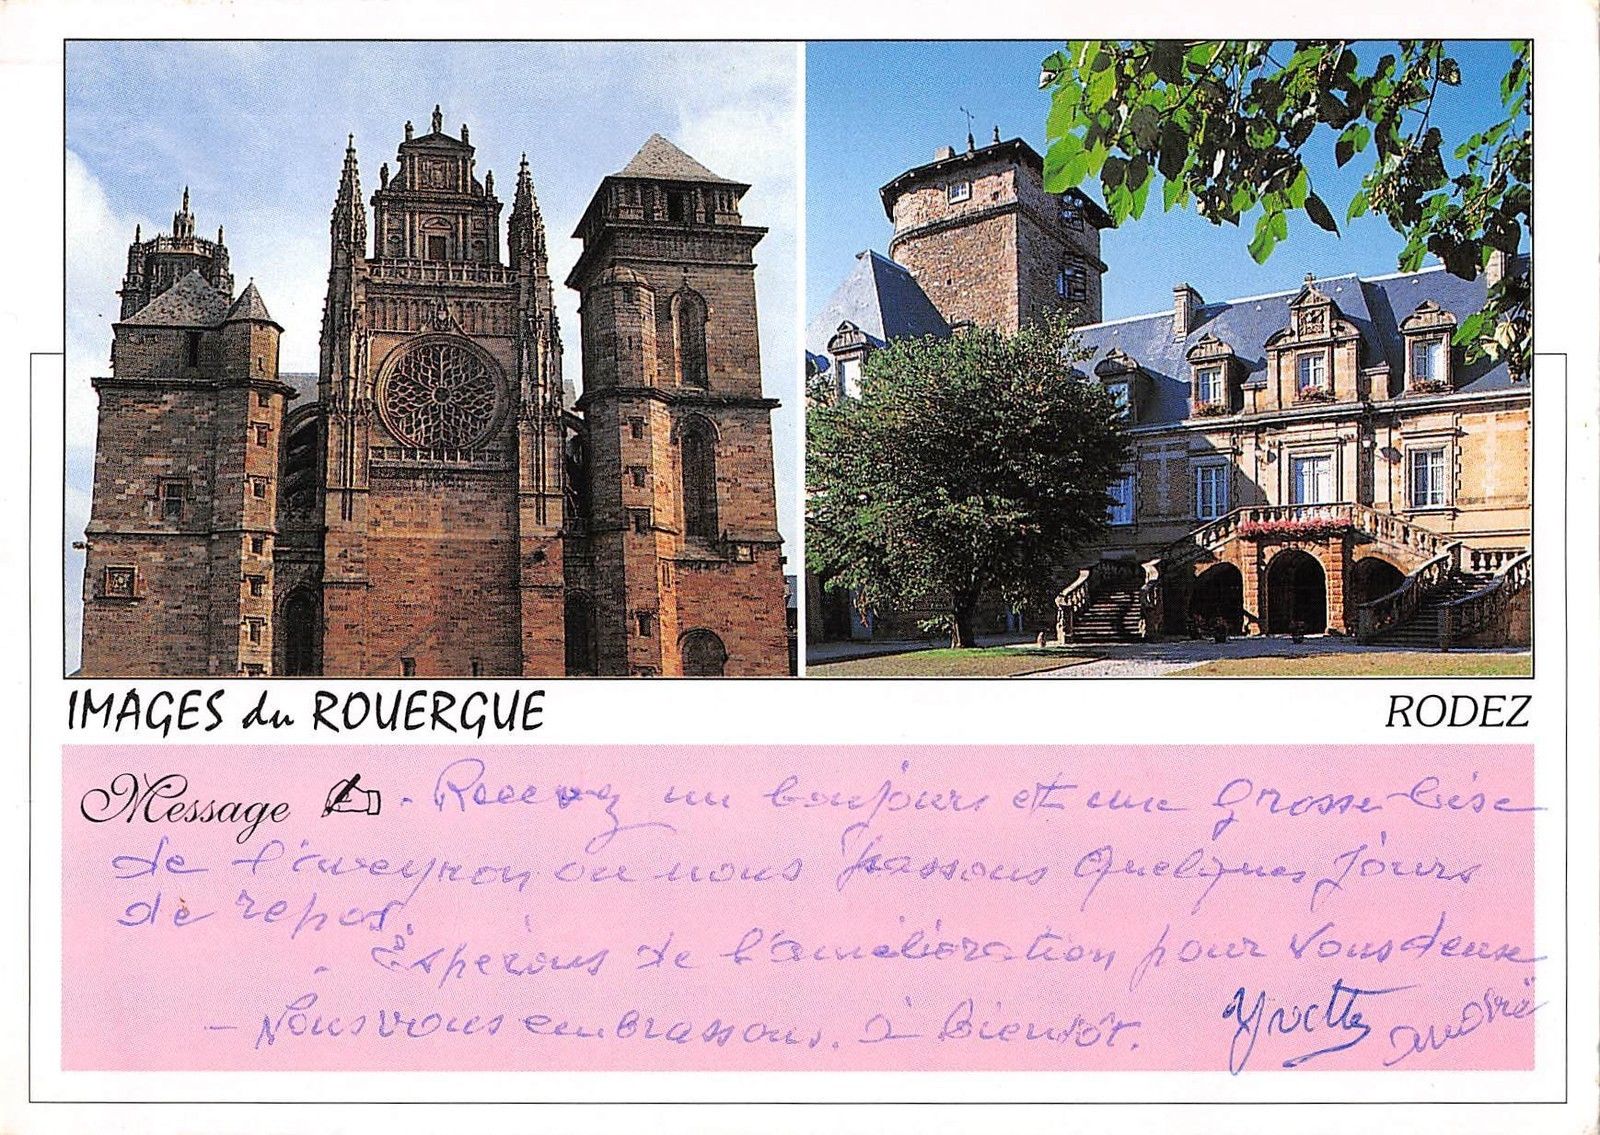 IMAGES du ROUERGUE
RODEZ
Message - Recevez un bonjours et une Grosse bise
de l'aveyron ou nous passons quelques jours
de repos.
- Espérons de l'amélioration pour Vous deux
- Nous vous embrassons. à bientôt. Yvette André